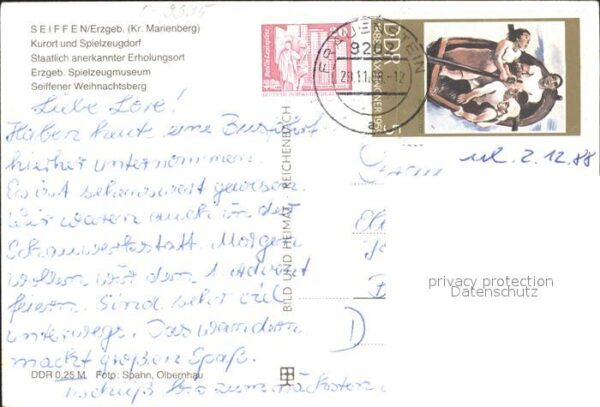 SEIFFEN/Erzgeb. (Kr. Marienberg)
Kurort und Spielzeugdorf
Staatlich anerkannter Erholungsort
Erzgeb. Spielzeugmuseum
Seiffener Weihnachtsberg
Liebe Lore!
Haben heute eine Busfahrt
hierher unternommen.
Es ist sehenswert gewesen.
Wir waren auch in der
Schauwerkstatt. Morgen
wollen wir den 1. Advent
feiern. Sind sehr viel
unterwegs. Das wandern
macht großen Spaß.
bis zum nächsten
DDR 0,25 M Foto: Spahn, Olbernhau
BILD UND HEIMAT REICHENBACH
DDR
5
28.11.88-12
a
erh. 2.12.88
D
privacy protection
Datenschutz